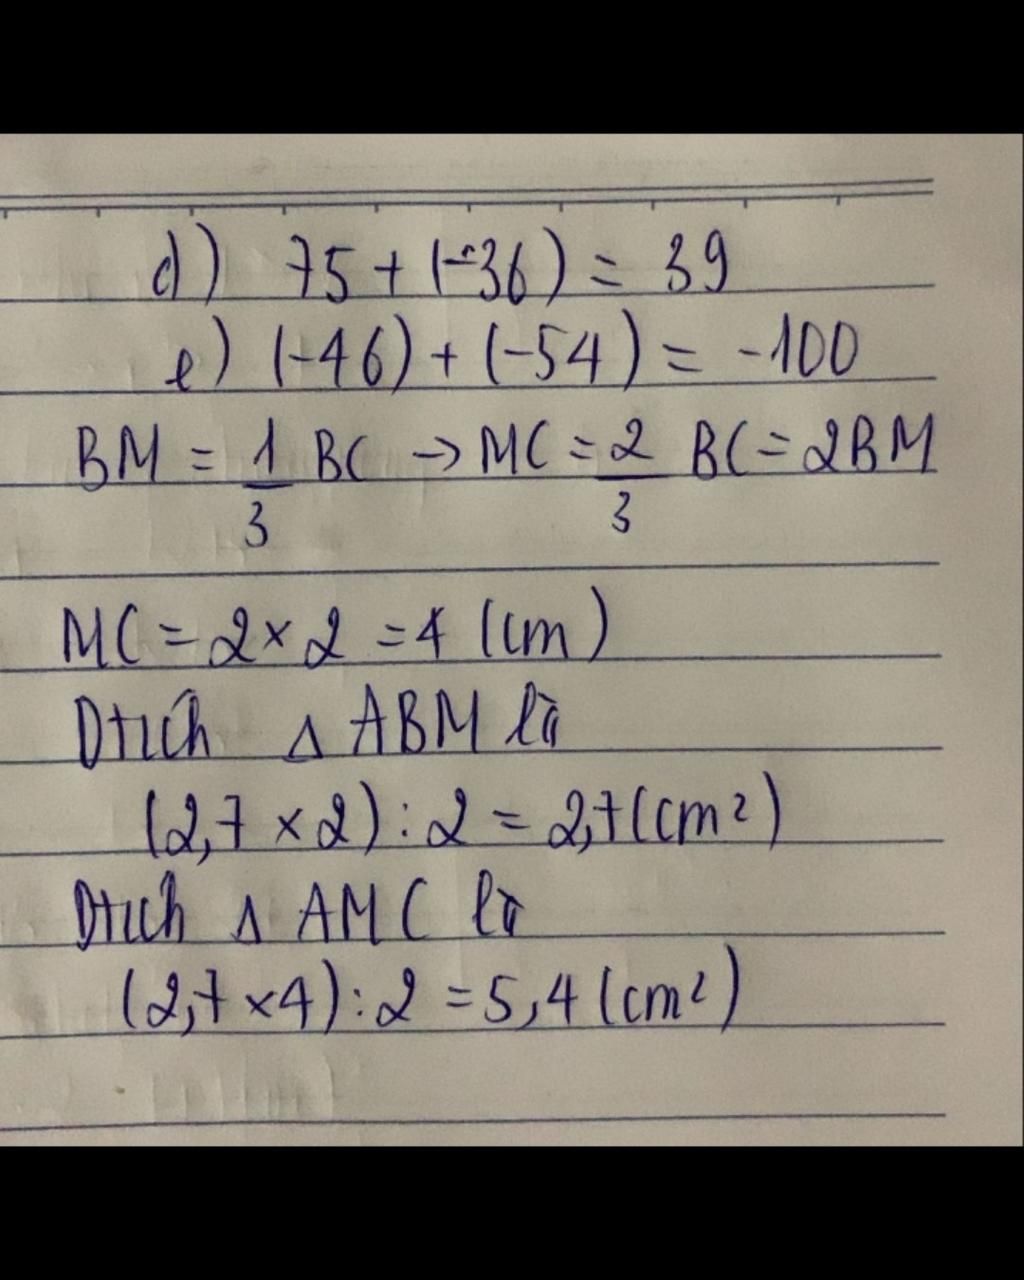 d) 75 + (-36) = 39
e) (-46) + (-54) = -100
BM = 1/3 BC → MC = 2/3 BC = 2BM
MC = 2 × 2 = 4 (cm)
Dtích Δ ABM là
(2,7 × 2) : 2 = 2,7 (cm²)
Dtích Δ AMC là
(2,7 × 4) : 2 = 5,4 (cm²)